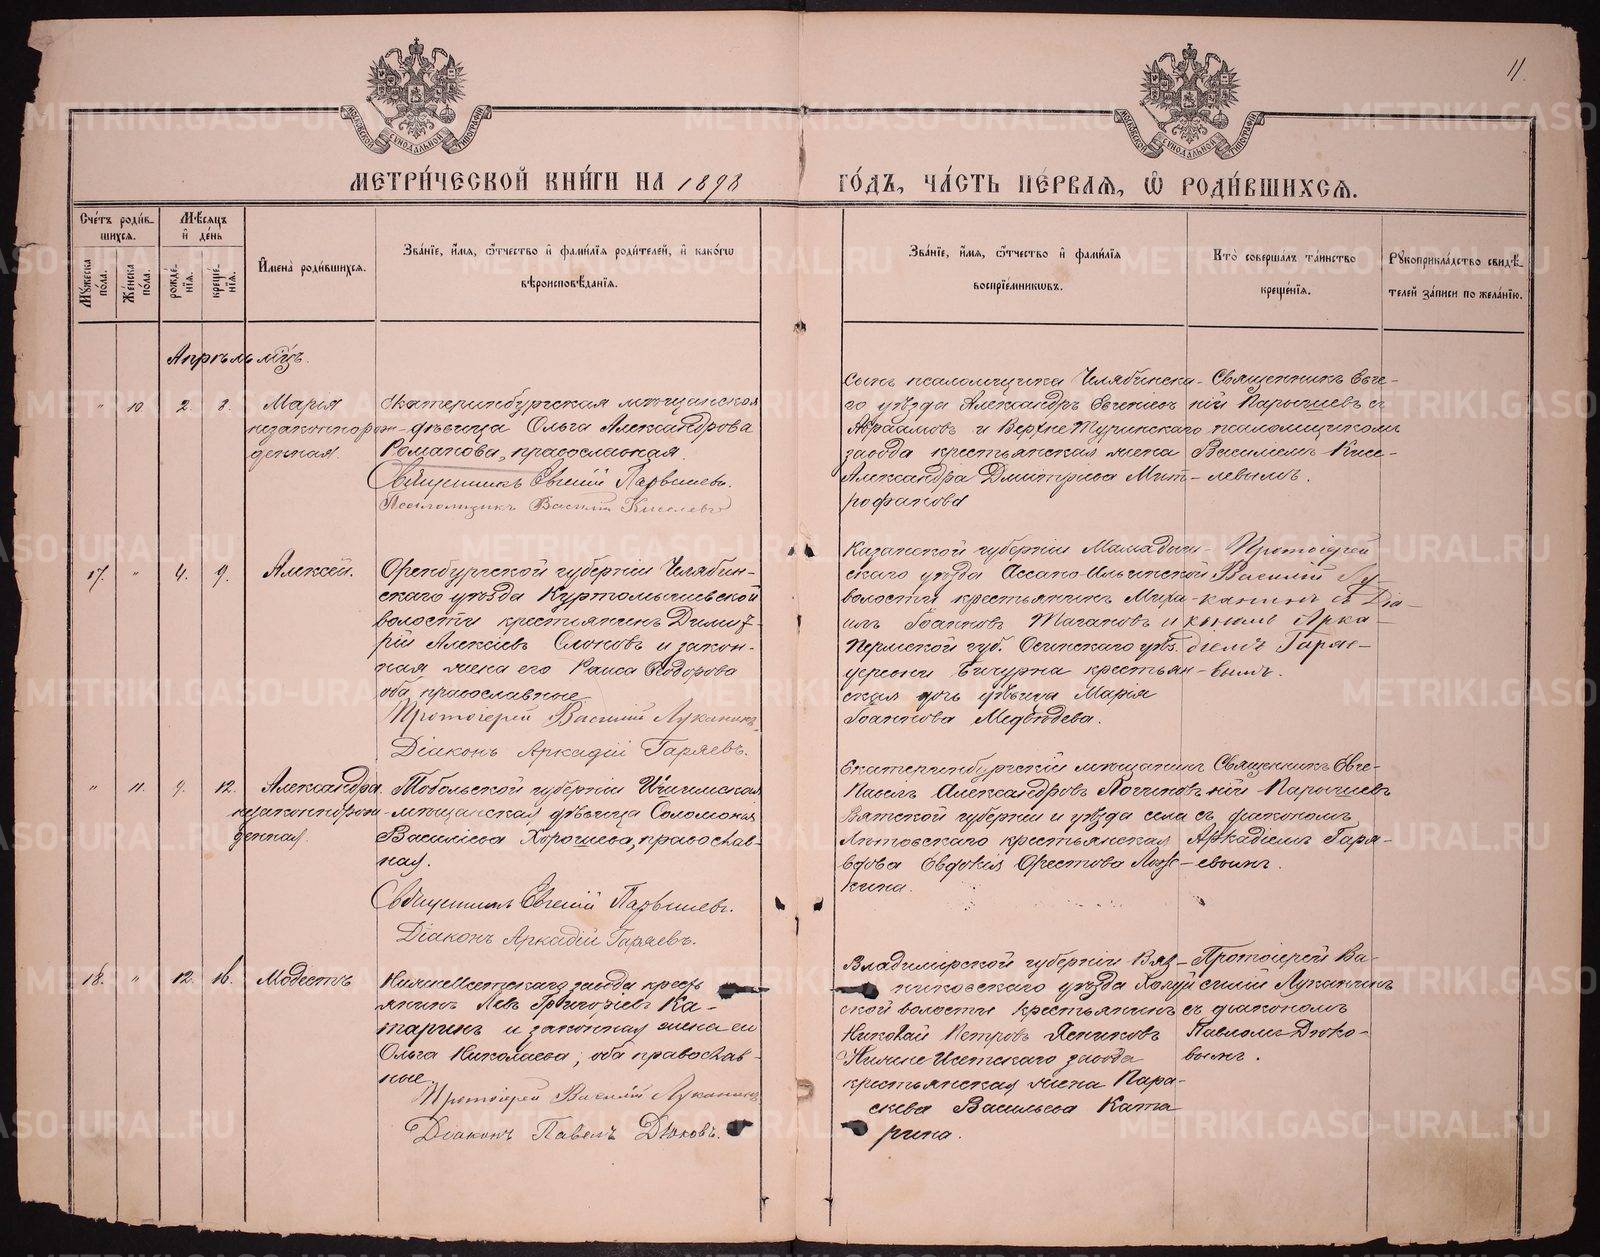 11.
МОСКОВСКОЙ СѴНОДАЛЬНОЙ ТИПОГРАФІИ
МОСКОВСКОЙ СѴНОДАЛЬНОЙ ТИПОГРАФІИ
МЕТРИ́ЧЕСКОЙ КНИ́ГИ НА 1898
ГО́ДЪ, ЧА́СТЬ ПЕ́РВАЯ, Ѡ РОДИ́ВШИХСЯ.
Сче́тъ роди́в-
шихся.
Мꙋжеска по́ла.
Же́нска по́ла.
Мѣсяцъ
и де́нь
рожде́-
нїя.
креще́-
нїя.
Имена̀ роди́вшихся.
Зва́нїе, и́мя, ѻ́тчество и фами́лїя роди́телей, и како́гѡ
вѣроисповѣ́данїя.
Зва́нїе, и́мя, ѻ́тчество и фами́лїя
воспрїе́мникѡвъ.
Кто̀ соверша́лъ та́инство
креще́нїя.
Рꙋкоприкла́дство свидѣ́-
телей за́писи по жела́нїю.
Апрѣль мѣсц.
" 10 2. 8. Марія
незаконнорож-
денная.
Екатеринбургская мѣщанская
дѣвица Ольга Александрова
Романова, православная.
Священникъ Евгеній Парышевъ.
Псаломщикъ Василій Киселевъ
Сынъ псаломщика Челябинска-
го уѣзда Александръ Евгеніевъ
Авраамовъ и Верхне Туринскаго
завода крестьянская жена
Александра Димитріева Мит-
рофанова
Священникъ Евге-
ній Парышевъ съ
псаломщикомъ
Василіемъ Кисе-
левымъ.
17. " 4. 9. Алексѣй.
Оренбургской губерніи Челябин-
скаго уѣзда Куртамышевской
волости крестьянинъ Димит-
рій Алексіевъ Слоновъ и закон-
ная жена его Раиса Ѳедорова
оба православные
Протоіерей Василій Луканинъ
Діаконъ Аркадій Гаряевъ.
Казанской губерніи Мамадыш-
скаго уѣзда Ильинской
волости крестьянинъ Миха-
илъ Іоанновъ Тагановъ и
Пермской губ. Осинскаго уѣз.
деревни Бичурка крестьян-
ская дочь дѣвица Марія
Іоаннова Медвѣдева.
Протоіерей
Василій Лу-
канинъ съ Діа-
кономъ Арка-
діемъ Гаря-
вымъ.
" 11. 9. 12. Александра.
незаконнорож-
денная.
Тобольской губерніи Ишимская
мѣщанская дѣвица Соломонія
Василіева Хорошева, православ-
ная.
Священникъ Евгеній Парышевъ.
Діаконъ Аркадій Гаряевъ.
Екатеринбургскій мѣщанинъ
Павелъ Александровъ Логиновъ
Вятской губерніи и уѣзда села
крестьянская
вдова Евдокія Орестова Лоп-
кина.
Священникъ Евге-
ній Парышевъ
съ діакономъ
Аркадіемъ Гаря-
евымъ.
18. " 12. 16. Модестъ
Нижнеисетскаго завода кресть
янинъ Левъ Григоріевъ Ка-
таринъ и законная жена его
Ольга Николаева, оба православ-
ные.
Протоіерей Василій Луканинъ
Діаконъ Павелъ Дюковъ.
Владимірской губерніи Вяз-
никовскаго уѣзда Холуй
ской волости крестьянинъ
Николай Петровъ
Нижне Исетскаго завода
крестьянская жена Пара-
скева Васильева Ката
рина.
Протоіерей Ва-
силій Луканинъ
съ діакономъ
Павломъ Дюко-
вымъ.
METRIKI.GASO-URAL.RU